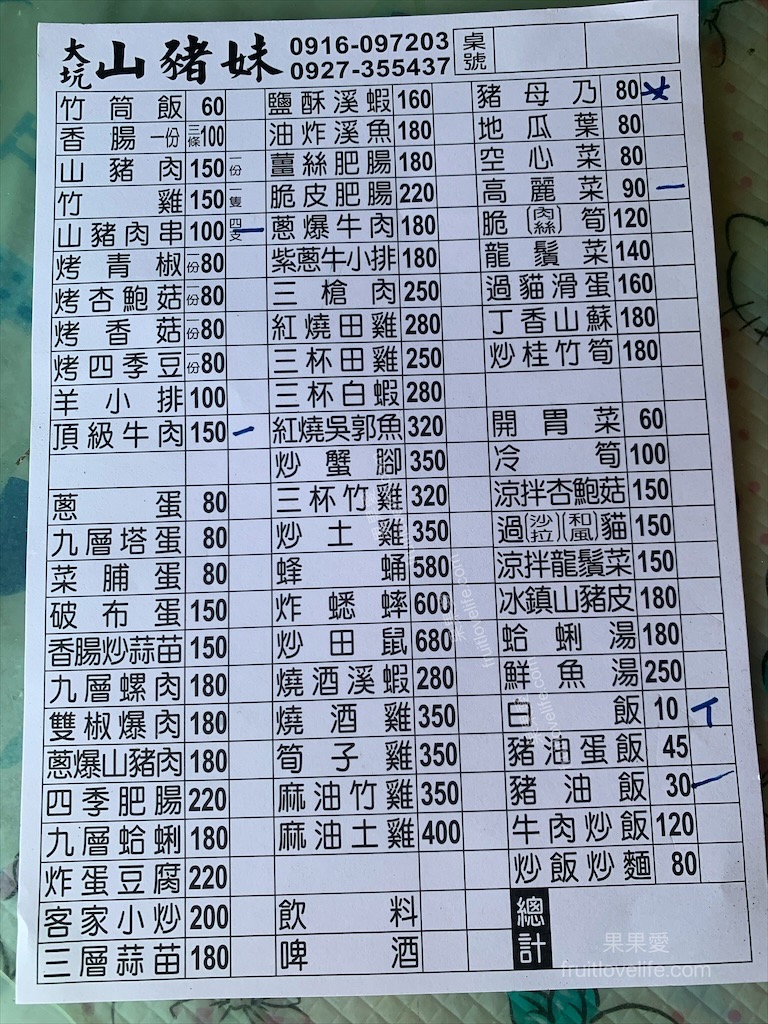 大坑 山豬妹 0916-097203 桌號
0927-355437
竹筒飯 60
香腸 一份 三條 100
山豬肉 150 一份
竹雞 150 一隻
山豬肉串 100 四支 一
烤青椒 一份 80
烤杏鮑菇 一份 80
烤香菇 一份 80
烤四季豆 一份 80
羊小排 100
頂級牛肉 150 一
蔥蛋 80
九層塔蛋 80
菜脯蛋 80
破布蛋 150
香腸炒蒜苗 150
九層螺肉 180
雙椒爆肉 180
蔥爆山豬肉 180
四季肥腸 220
九層蛤蜊 180
炸蛋豆腐 220
客家小炒 200
三層蒜苗 180
鹽酥溪蝦 160
油炸溪魚 180
薑絲肥腸 180
脆皮肥腸 220
蔥爆牛肉 180
紫蔥牛小排 180
三槍肉 250
紅燒田雞 280
三杯田雞 250
三杯白蝦 280
紅燒吳郭魚 320
炒蟹腳 350
三杯竹雞 320
炒土雞 350
蜂蛹 580
炸蟋蟀 600
炒田鼠 680
燒酒溪蝦 280
燒酒雞 350
筍子雞 350
麻油竹雞 350
麻油土雞 400
飲料
啤酒
豬母乃 80
地瓜葉 80
空心菜 80
高麗菜 90 一
脆(肉絲)筍 120
龍鬚菜 140
過貓滑蛋 160
丁香山蘇 180
炒桂竹筍 180
開胃菜 60
冷筍 100
涼拌杏鮑菇 150
過(沙拉)(和風)貓 150
涼拌龍鬚菜 150
冰鎮山豬皮 180
蛤蜊湯 180
鮮魚湯 250
白飯 10
豬油蛋飯 45
豬油飯 30 一
牛肉炒飯 120
炒飯炒麵 80
總計
果果愛
fruitlovelife.com